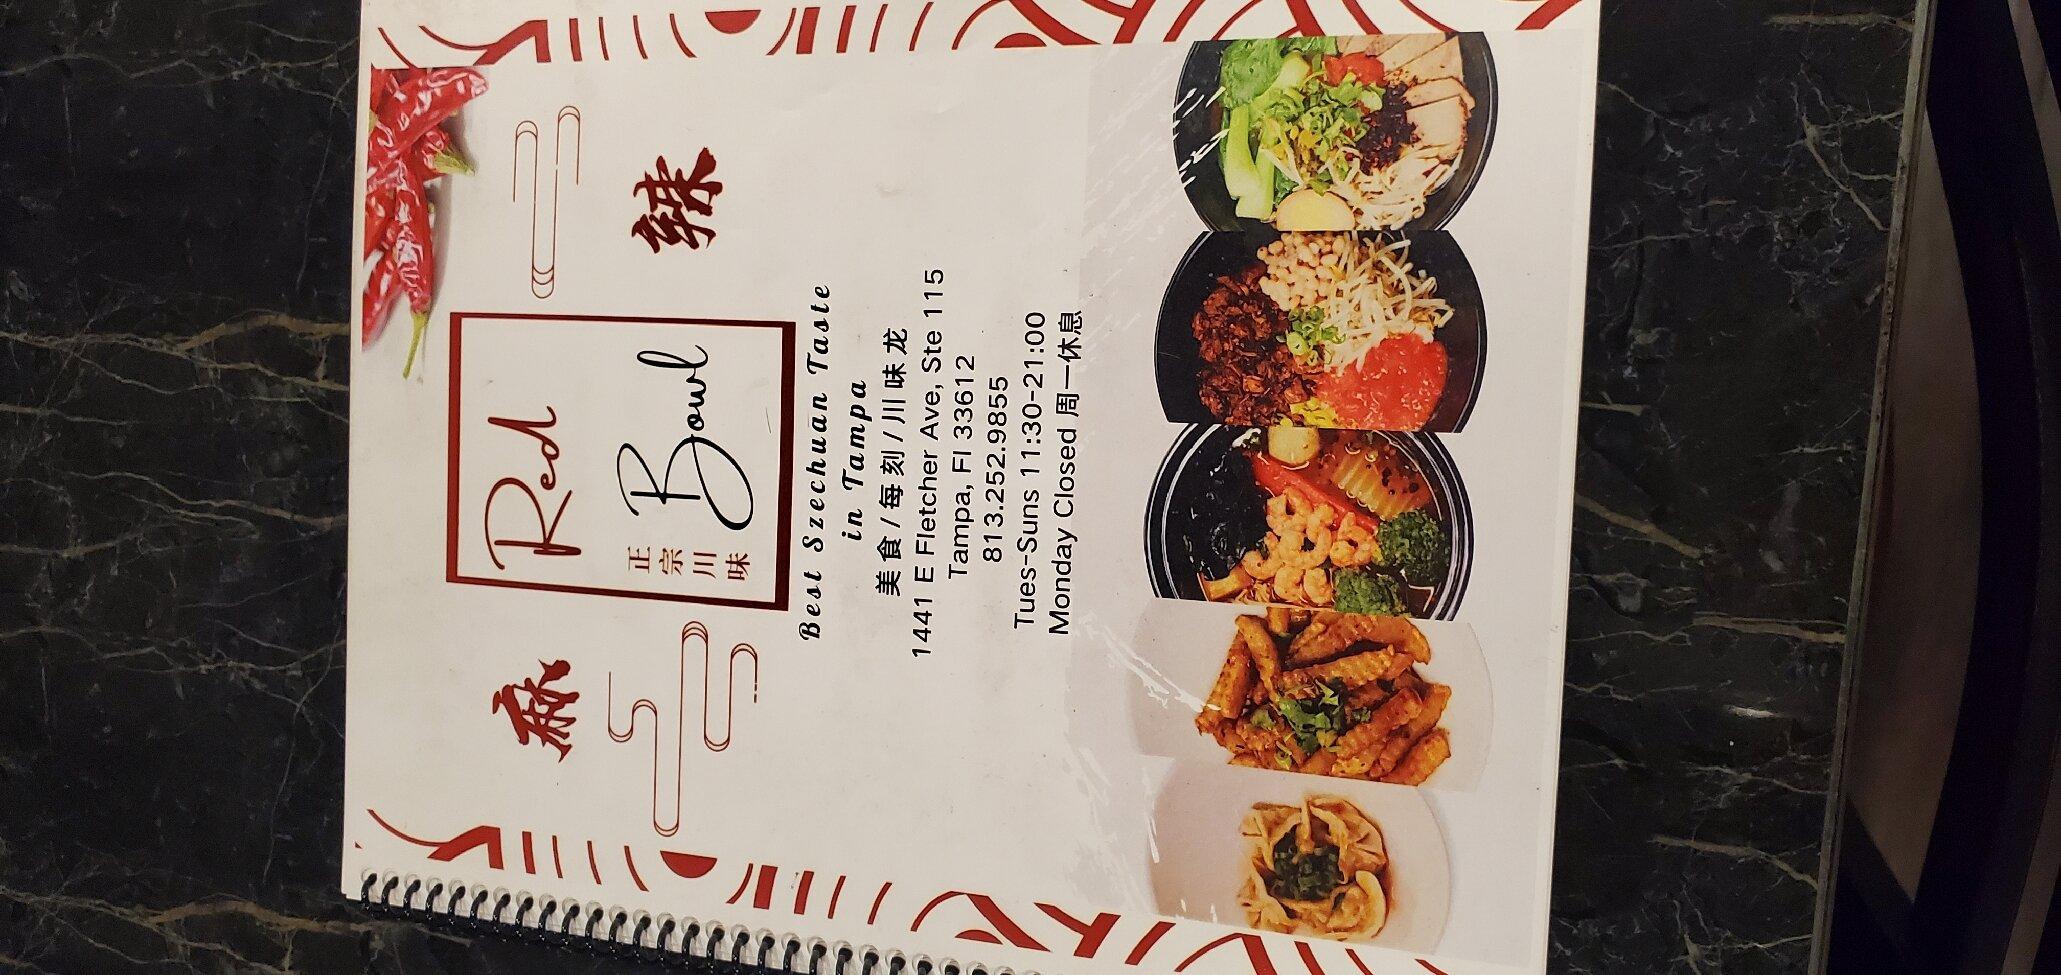 麻
辣
Red
Bowl
正宗川味
Best Szechuan Taste
in Tampa
美食/每刻/川味龙
1441 E Fletcher Ave, Ste 115
Tampa, Fl 33612
813.252.9855
Tues-Suns 11:30-21:00
Monday Closed 周一休息